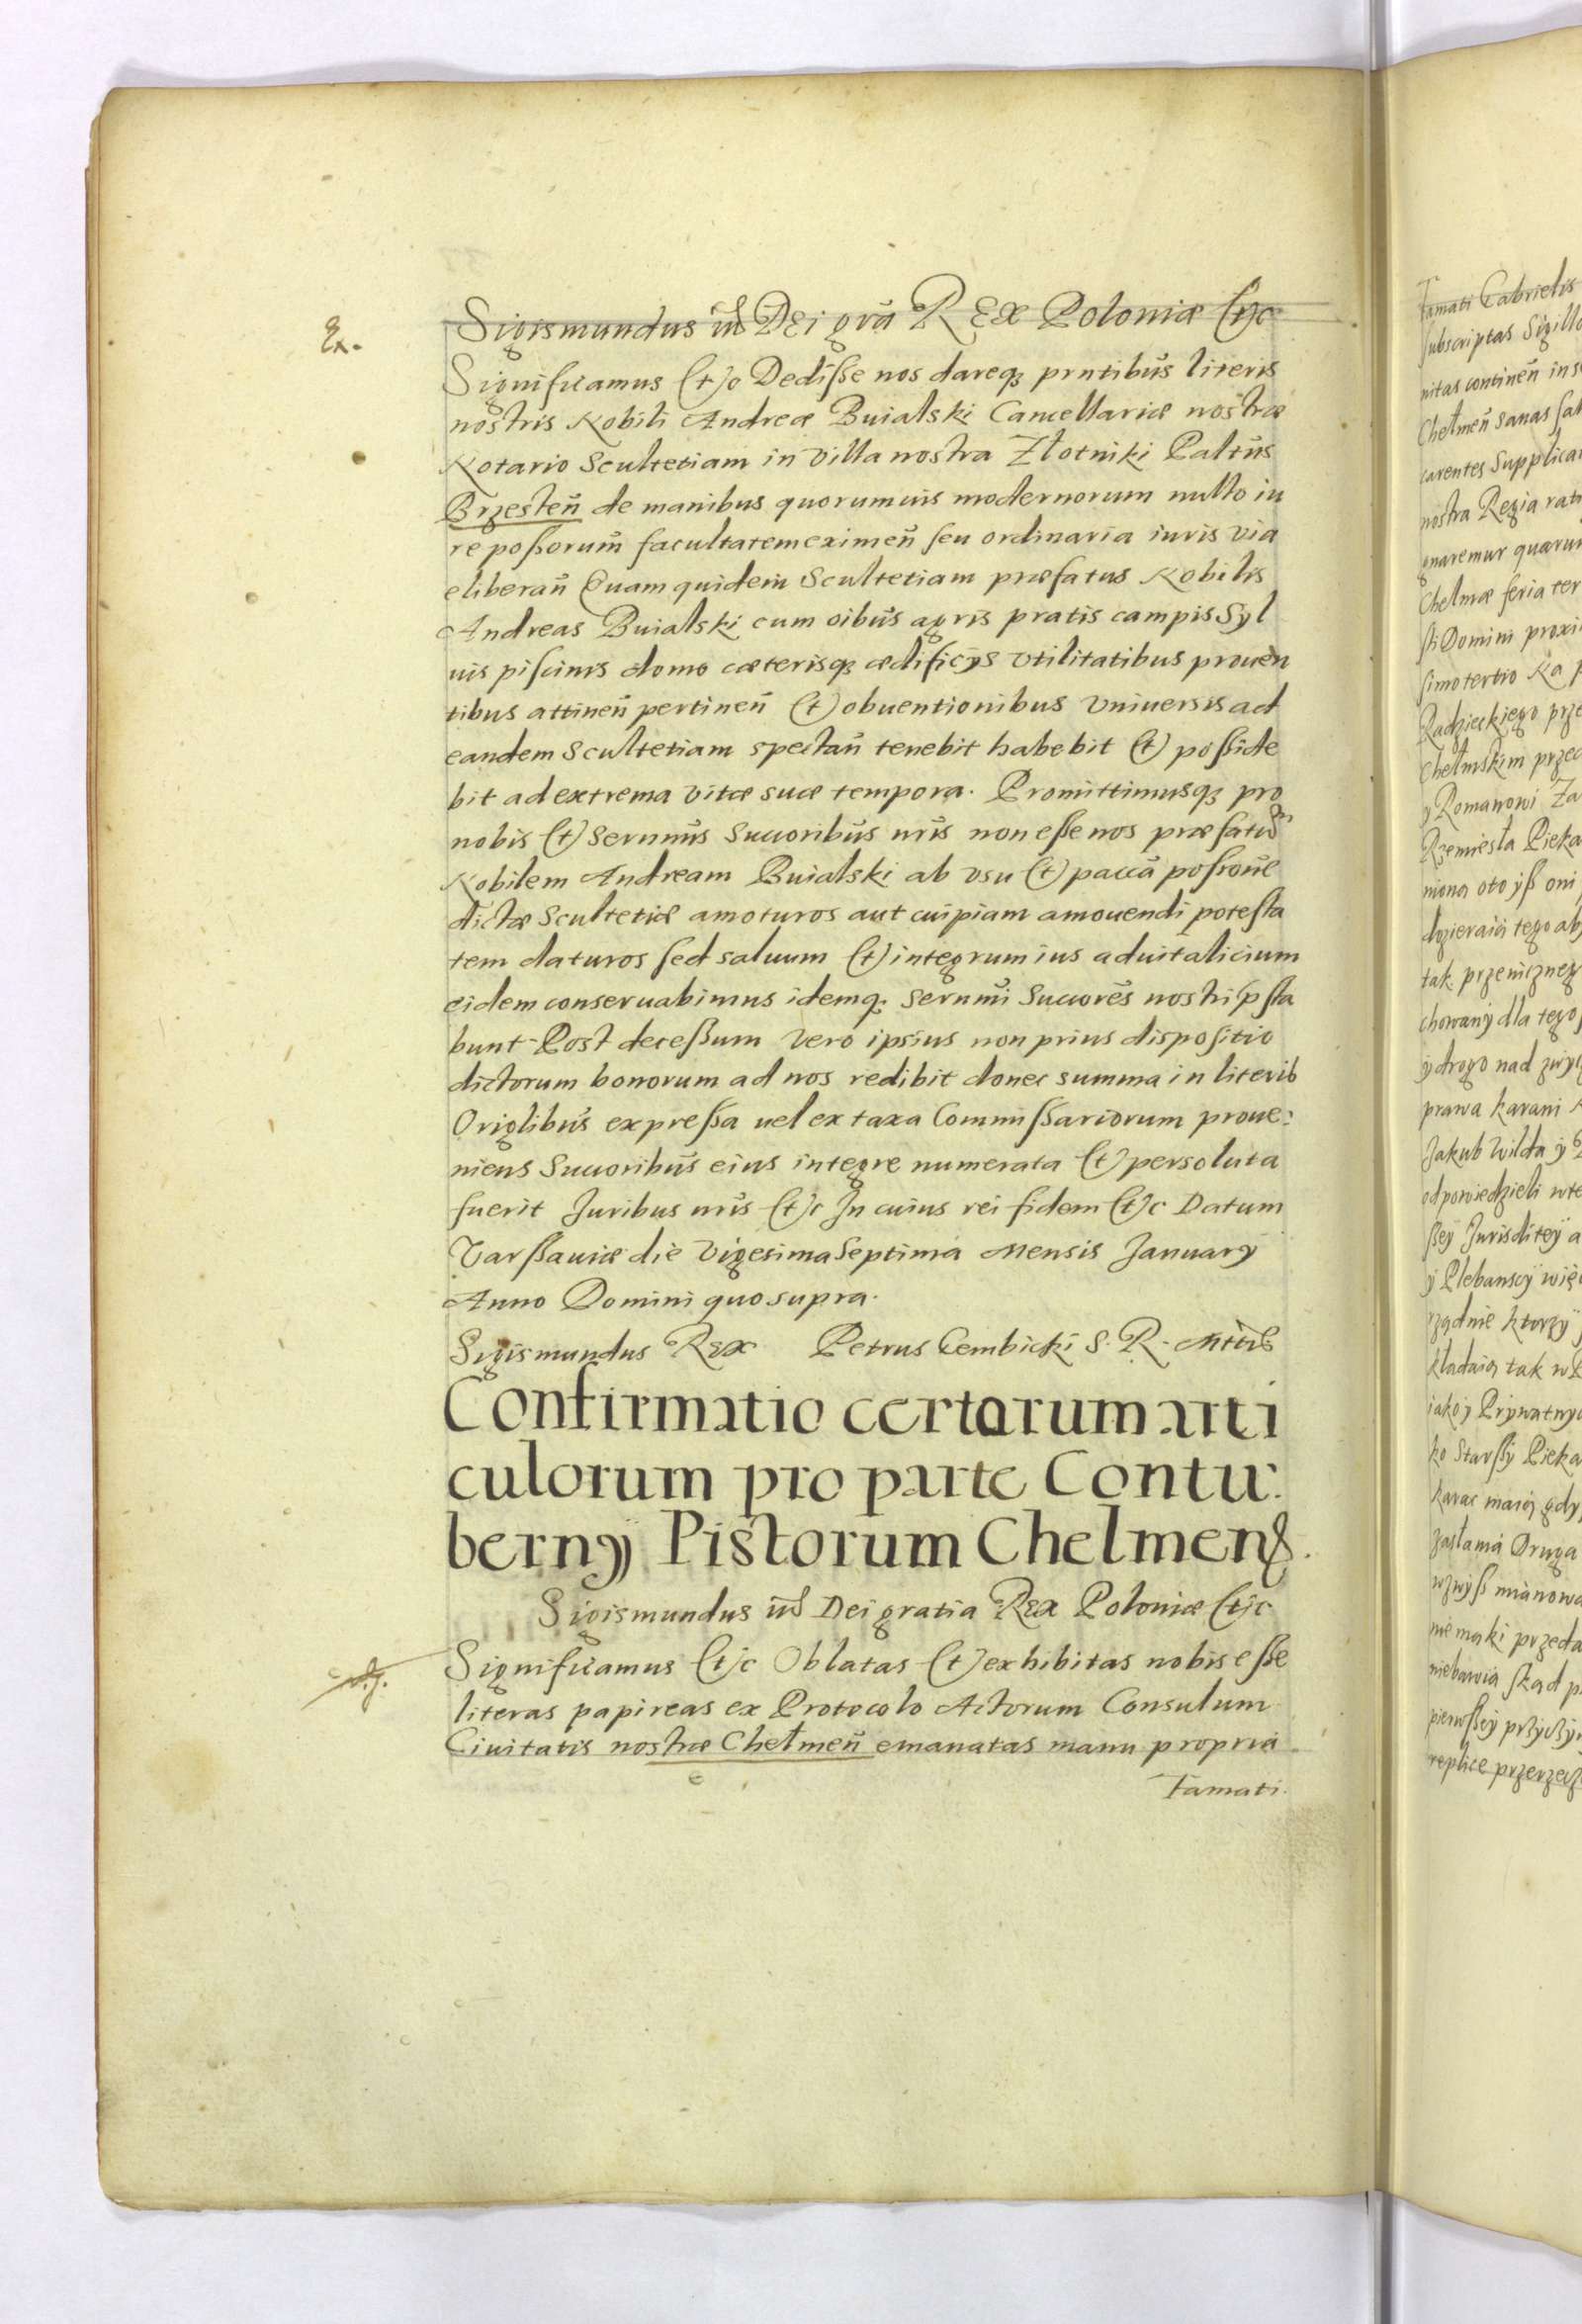 Sigismundus iiiˢ DEi grã REX Poloniæ (t)c
Ex.
Significamus (t)c Dediſse nos dareq₃ prntibũs literis
nostris Nobili Andreæ Buialski Cancellariæ nostræ
Notario Scultetiam in villa nostra Złotniki Paltũs
Brzesteñ de manibus quorumuis modernorum nullo iu
re poſsorum̃ facultatem eximeñ seu ordinaria iuris via
eliberañ Quam quidem Scultetiam præfatus Nobilis
Andreas Buialski cum oibũs agris pratis campis Syl
uis piscinis domo cæterisq₃ ædificÿs vtilitatibus prouen
tibus attineñ pertineñ (t) obuentionibus vniuersis ad
eandem Scultetiam spectañ tenebit habebit (t) poſside
bit ad extrema vitæ suæ tempora. Promittimusq₃ pro
nobis (t) Sernmis̃ Suuoribũs nris̃ non eſse nos præfatũ
Nobilem Andream Buialski ab vsu (t) paccã poſsonẽ
dictæ Scultetiæ amoturos aut cuipiam amouendi potesta
tem daturos sed saluum (t) integrum ius aduitalicium
eidem conseruabimus idemq₃ Sernmĩ Suuorẽs nostri pſta
bunt Post deceſsum vero ipsius non prius dispositio
dictorum bonorum ad nos redibit donec summa in literis
Origlibũs expreſsa uel ex taxa Commiſsariorum proue:
niens Suuoribũs eius integre numerata (t) persoluta
fuerit Juribus nris̃ (t)c In cuius rei fidem (t)c Datum
Varſsauiæ die Vigesima Septima Mensis Januarÿ
Anno Domini quo supra.
Sigismundus Rex Petrus Gembicki S. R. Mttis
Confirmatio certorum arti
culorum pro parte Contu:
bernÿ Pistorum Chelmeñ.
Sigismundus iiiˢ Dei gratia Rex Poloniæ (t)c
Significamus (t)c Oblatas (t) exhibitas nobis eſse
literas papireas ex Protocolo Actorum Consulum
Ciuitatis nostræ Chełmeñ emanatas manu propria
Famati.
Famati Gabrielis
subscriptas Sigillo
nitas contineñ in s
Chełmeñ sanas sal
carentes Supplica
nostra Regia rat
gnaremur quaru
Chelmæ feria ter
sti Domini proxi
simo tertio Na p
Radzieckiego prze
Chełmskim przed
y Romanowi Za
Rzemiesła Pieka
niona oto yß oni
dozieraią tego ab
tak przeniczneg
chowany dla tego
y drogo nad zwyc
prawa karani
Jakub Wilda y
odpowiedzieli wte
ßey Jurisditey a
y Plebanscy więc
rządnie ktorzy
kładaią tak w P
iako y Prywatny
ko Starßy Pieka
karac maią gdy
zasłama Druga
wzwyß mianowa
nie mąki przeda
niebawia skąd p
pierwßey przyczy
replice przerzec